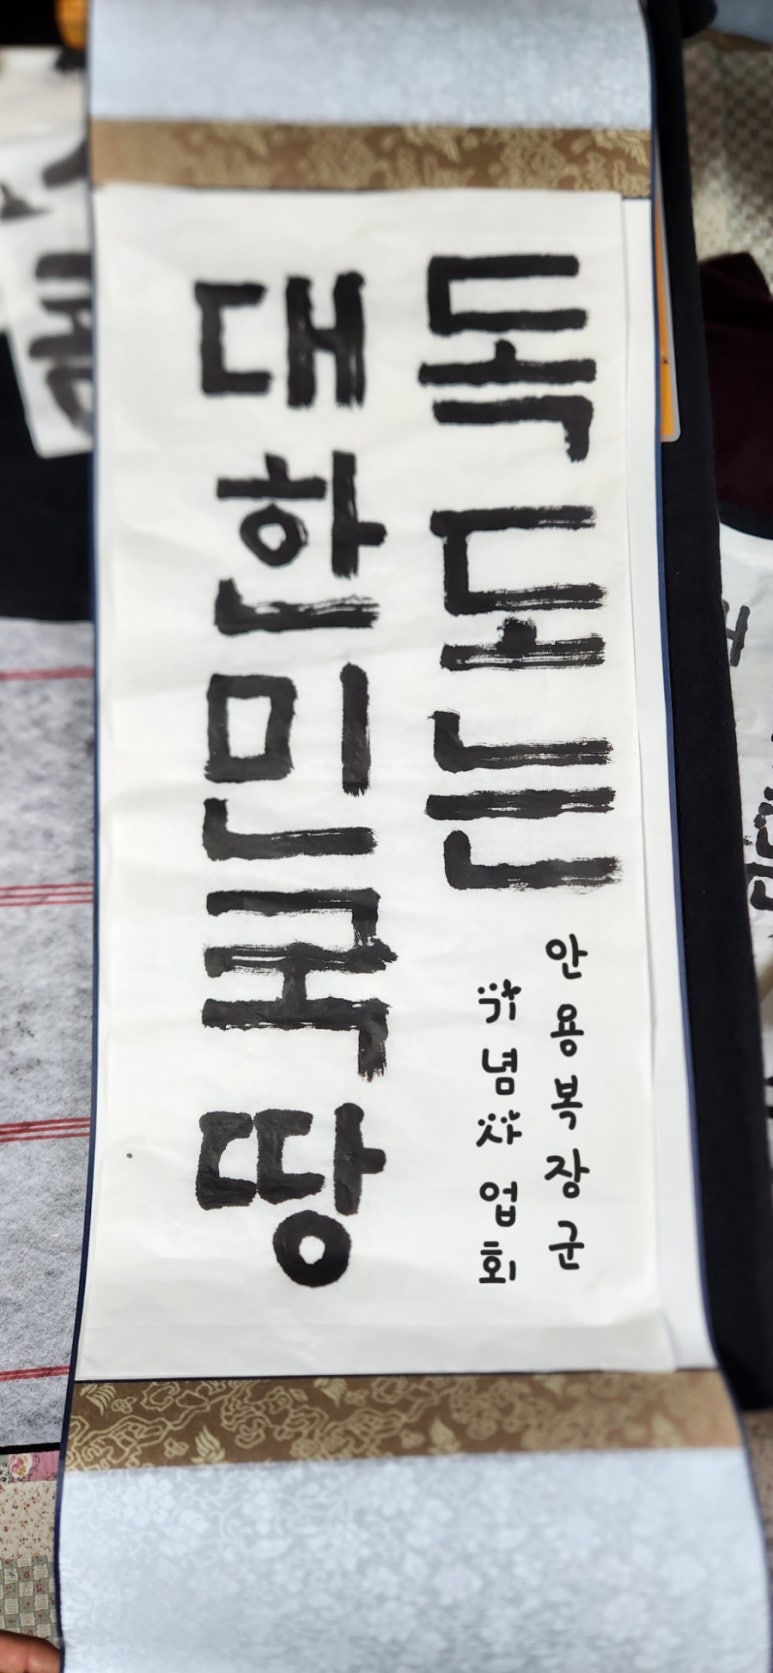 독도는
대한민국땅
안용복장군
기념사업회